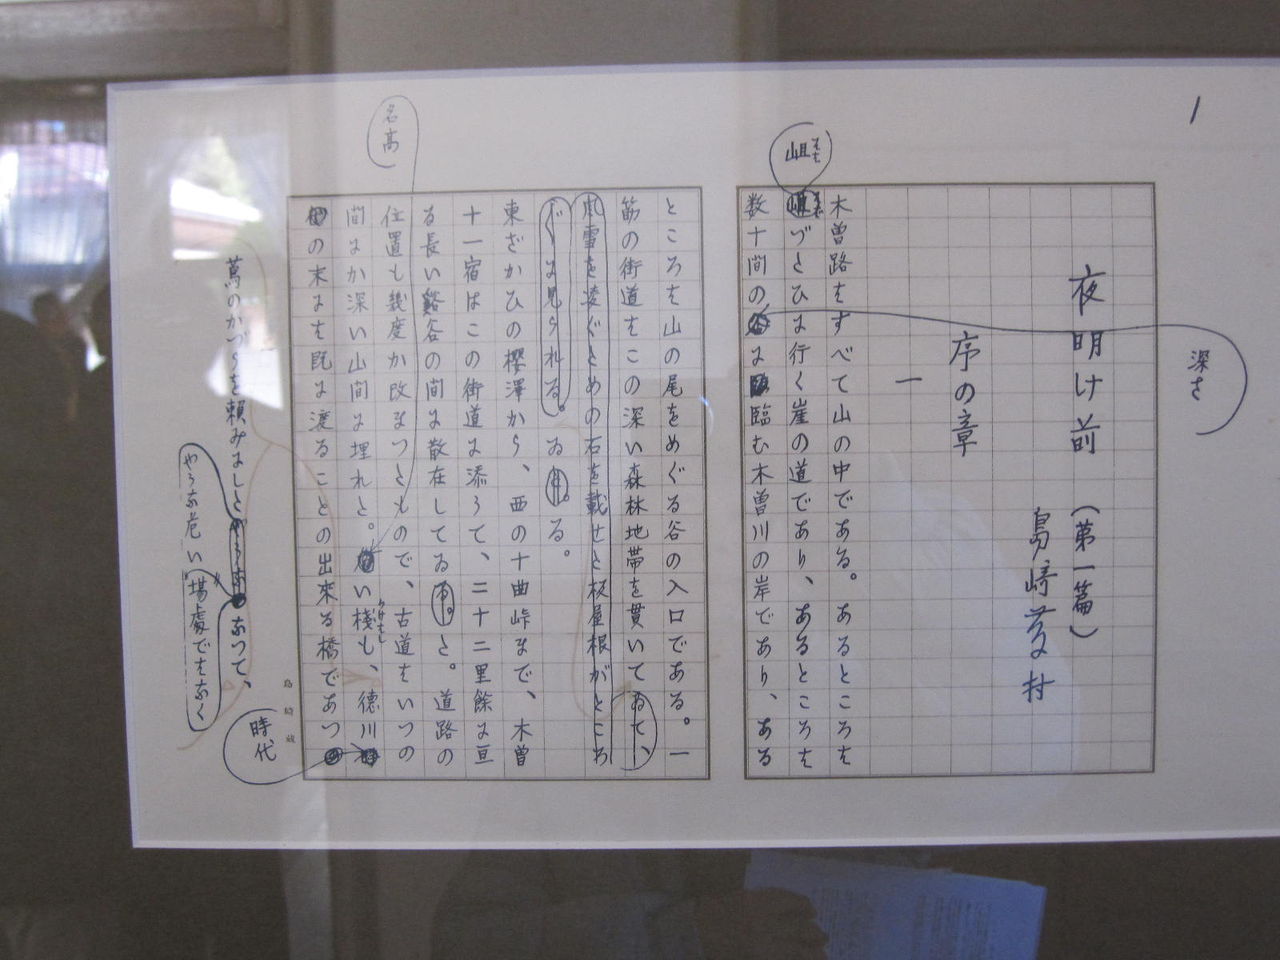 1
夜明け前 (第一篇)
島﨑藤村
序の章
一
木曽路はすべて山の中である。あるところは
岨づたひに行く崖の道であり、あるところは
岨そは
数十間の
深さ
に臨む木曽川の岸であり、ある
ところは山の尾をめぐる谷の入口である。一
筋の街道はこの深い森林地帯を貫いてゐて、
風雪を凌ぐための石を載せた板屋根がところ
ぐに見られる。ゐ
る。
東ざかひの櫻澤から、西の十曲峠まで、木曽
十一宿はこの街道に添うて、二十二里餘に亘
る長い谿谷の間に散在してゐ
た。道路の
位置も幾度か改まつたもので、古道はいつの
名高
間にか深い山間に埋れた。
い棧かけはしも、
徳川
時代
の末には既に渡ることの出来る橋であつ
蔦のかづらを頼みにした
やうな危い場處ではなく
なつて、
島崎蔵